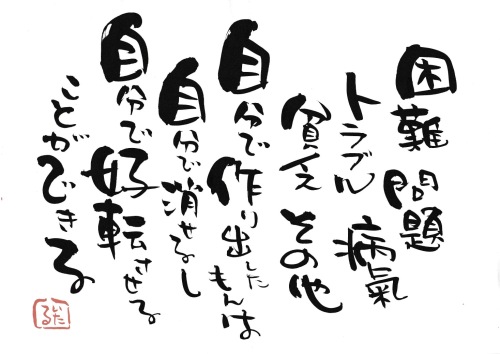 困難 問題
トラブル 病氣
貧乏 その他
自分で作り出したもんは
自分で消せるし
自分で好転させる
ことができる